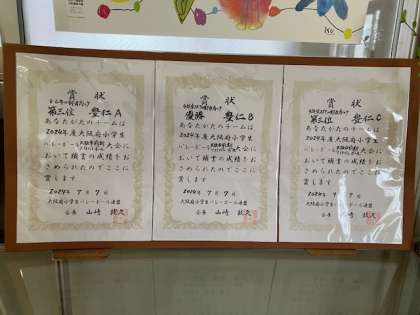 賞状
第三位 豊仁A
あなたがたのチームは
2024年度大阪府小学生
バレーボール 大会に
おいて頭書の成績をお
さめられたのでここに
賞します
2024年 7月 7日
大阪府小学生バレーボール連盟
会長 山崎
賞状
優勝 豊仁B
あなたがたのチームは
2024年度大阪府小学生
バレーボール 大会に
おいて頭書の成績をお
さめられたのでここに
賞します
2024年 7月 7日
大阪府小学生バレーボール連盟
会長 山崎
賞状
第三位 豊仁C
あなたがたのチームは
2024年度大阪府小学生
バレーボール 大会に
おいて頭書の成績をお
さめられたのでここに
賞します
2024年 7月 7日
大阪府小学生バレーボール連盟
会長 山崎